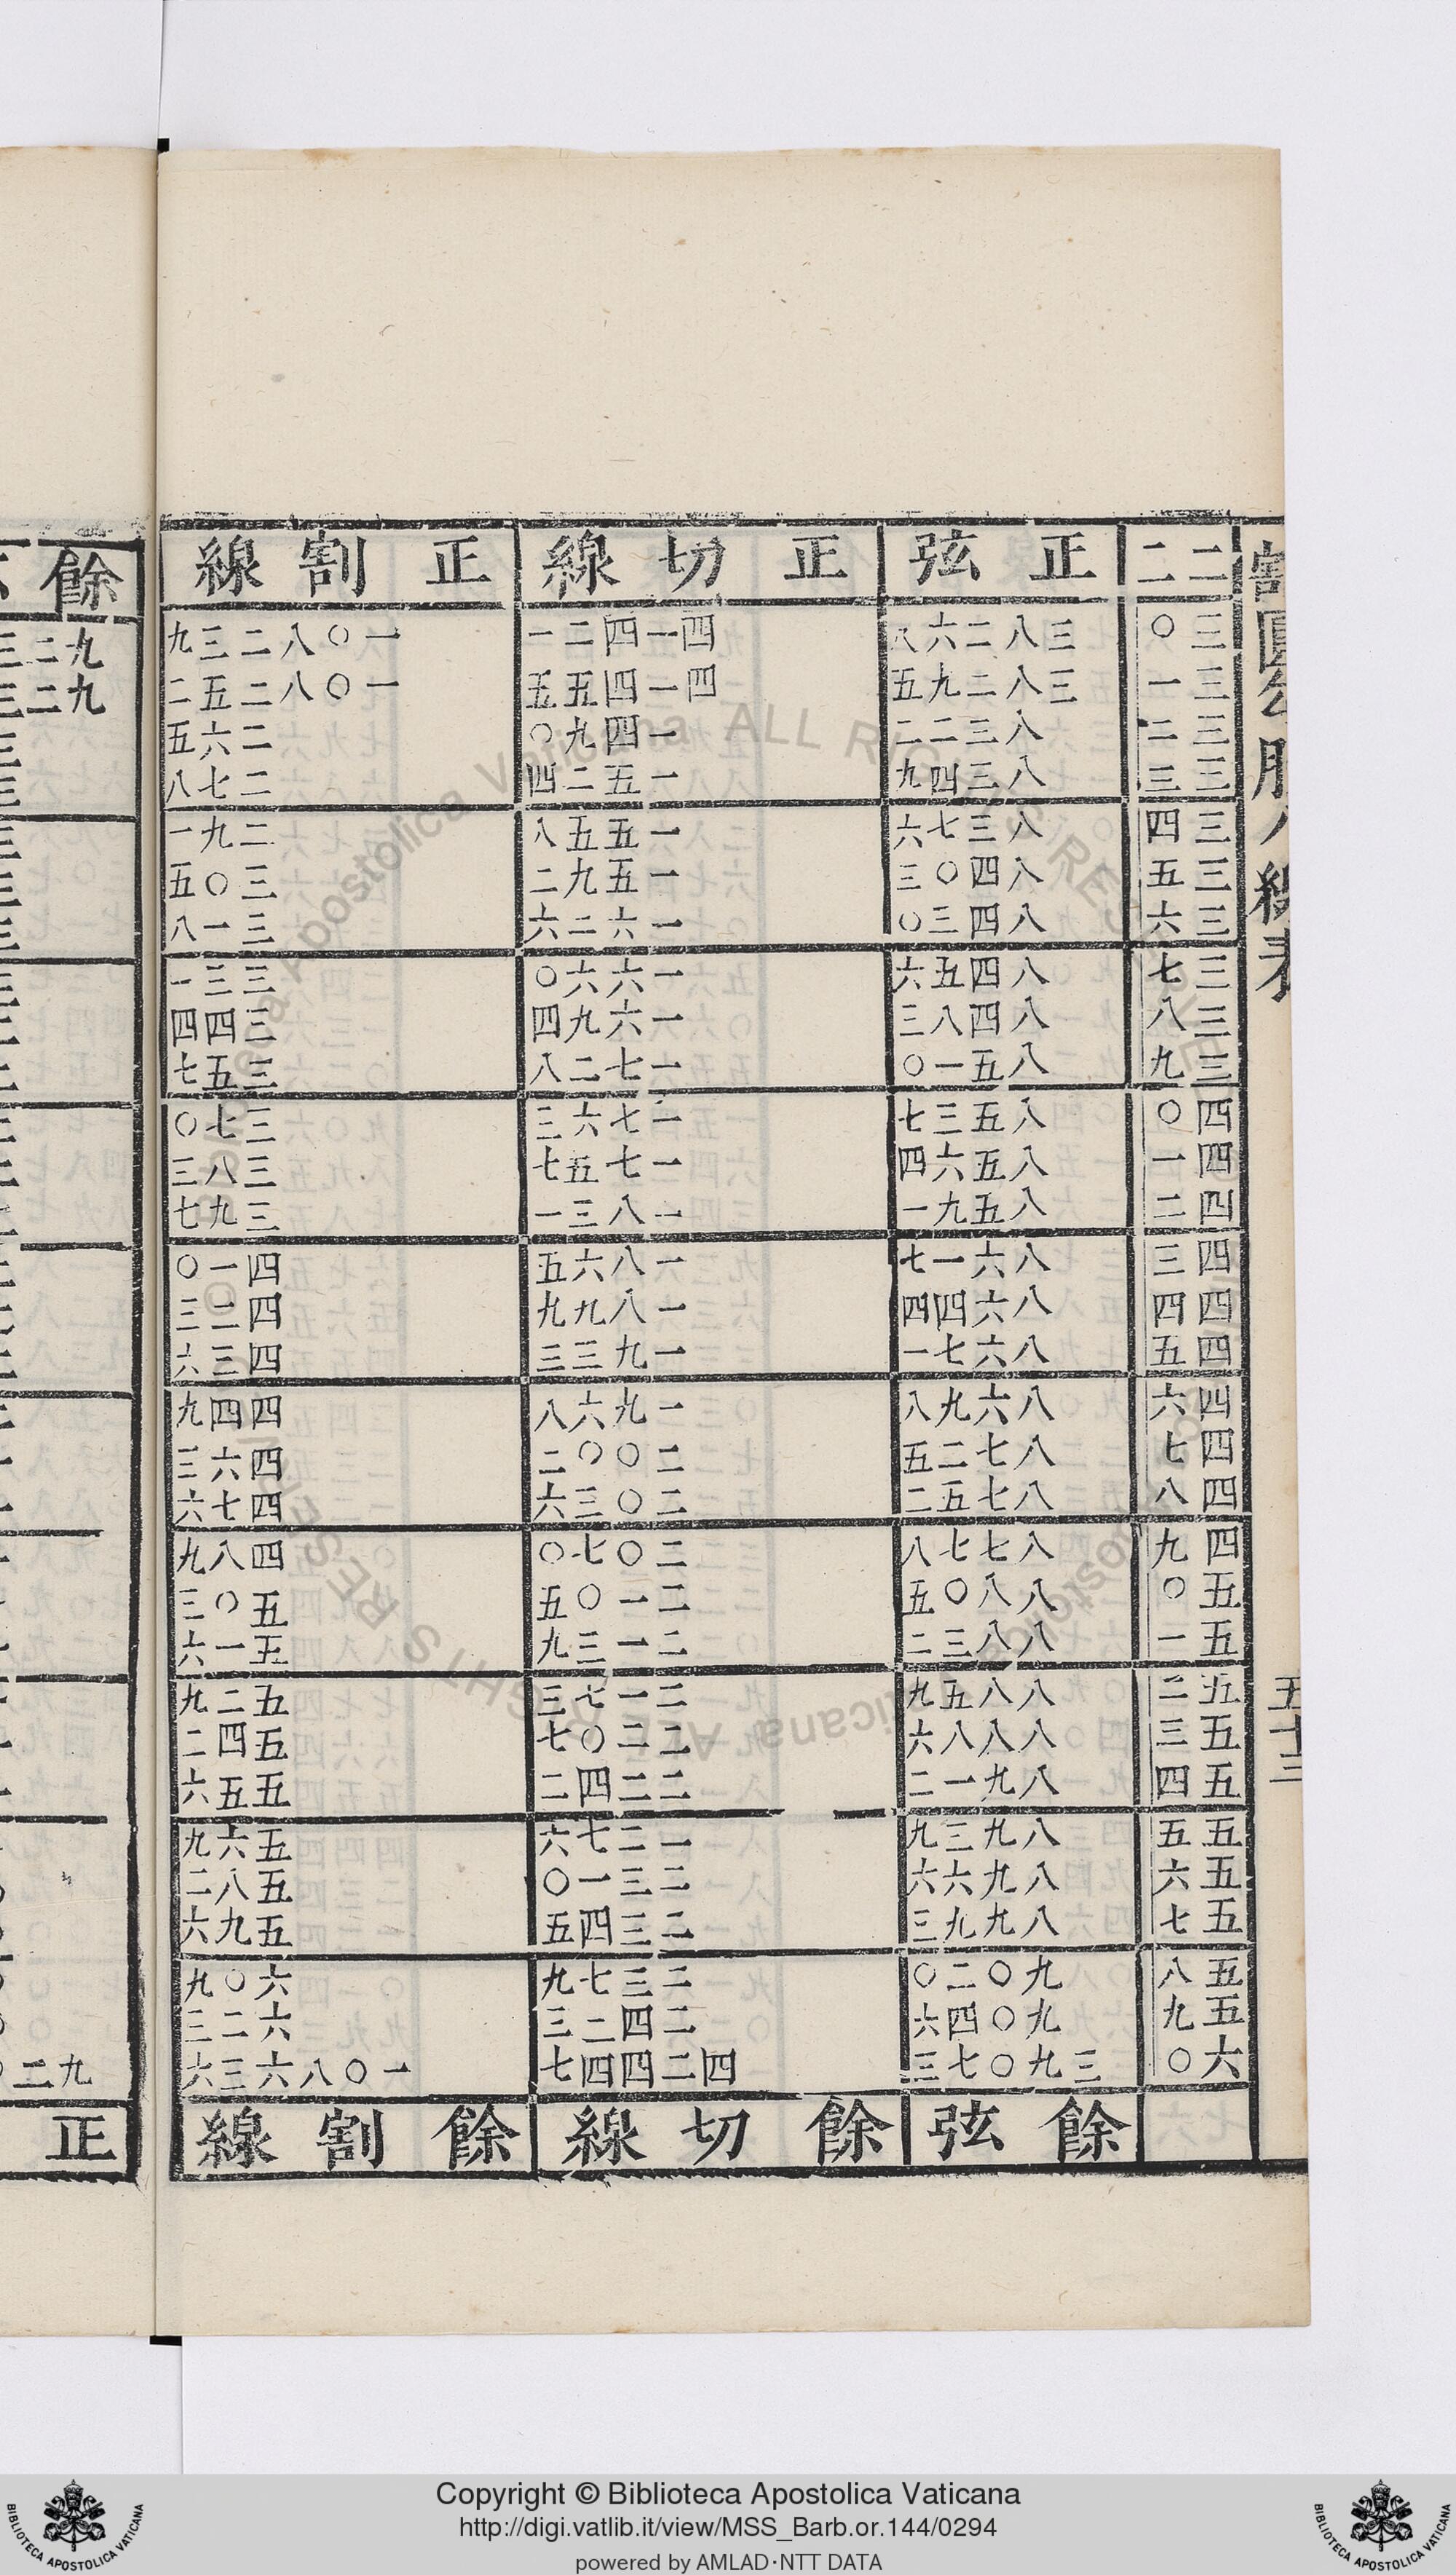 割圓勾股八線表
五十三
二二 正弦 正切線 正割線
三〇 三八二六八 四一四二一 一〇八二三九
三一 三八二九五 四一四五五 一〇八二五二
三二 八三二二 一四九〇 二六五
三三 八三四九 一五二四 二七八
三四 八三七六 一五五八 二九一
三五 八四〇三 一五九二 三〇五
三六 八四三〇 一六二六 三一八
三七 八四五六 一六六〇 三三一
三八 八四八三 一六九四 三四四
三九 八五一〇 一七二八 三五七
四〇 八五三七 一七六三 三七〇
四一 八五六四 一七五七 三八三
四二 八五九一 一八三一 三九七
四三 八六一七 一八六五 四一〇
四四 八六四四 一八九九 四二三
四五 八六七一 一九三三 四三六
四六 八六九八 一九六八 四四九
四七 八七二五 二〇〇二 四六三
四八 八七五二 二〇三六 四七六
四九 八七七八 二〇七〇 四八九
五〇 八八〇五 二一〇五 五〇三
五一 八八三二 二一三九 五一六
五二 八八五九 二一七三 五二九
五三 八八八六 二二〇七 五四二
五四 八九一二 二二四二 五五六
五五 八九三九 二二七六 五六九
五六 八九六六 二三一〇 五八二
五七 八九九三 二三四五 五九六
五八 九〇二〇 二三七九 六〇九
五九 九〇四六 二四二三 六二三
六〇 三九〇七三 四二四四七 一〇八六三六
餘弦 餘切線 餘割線
餘
正
Copyright © Biblioteca Apostolica Vaticana
http://digi.vatlib.it/view/MSS_Barb.or.144/0294
powered by AMLAD·NTT DATA
BIBLIOTECA APOSTOLICA VATICANA
BIBLIOTECA APOSTOLICA VATICANA